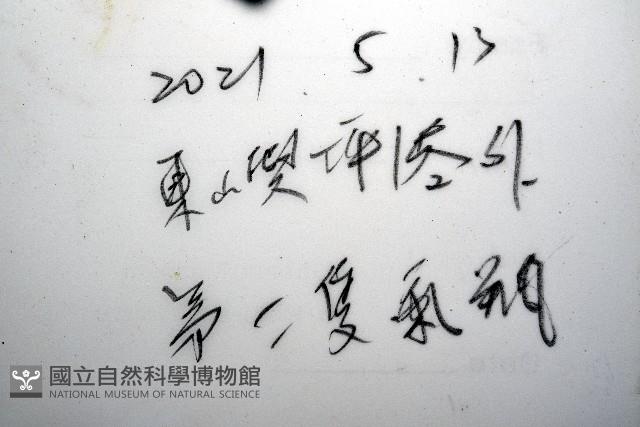 2021.5.13
東山 港外
第二隻
國立自然科學博物館
NATIONAL MUSEUM OF NATURAL SCIENCE